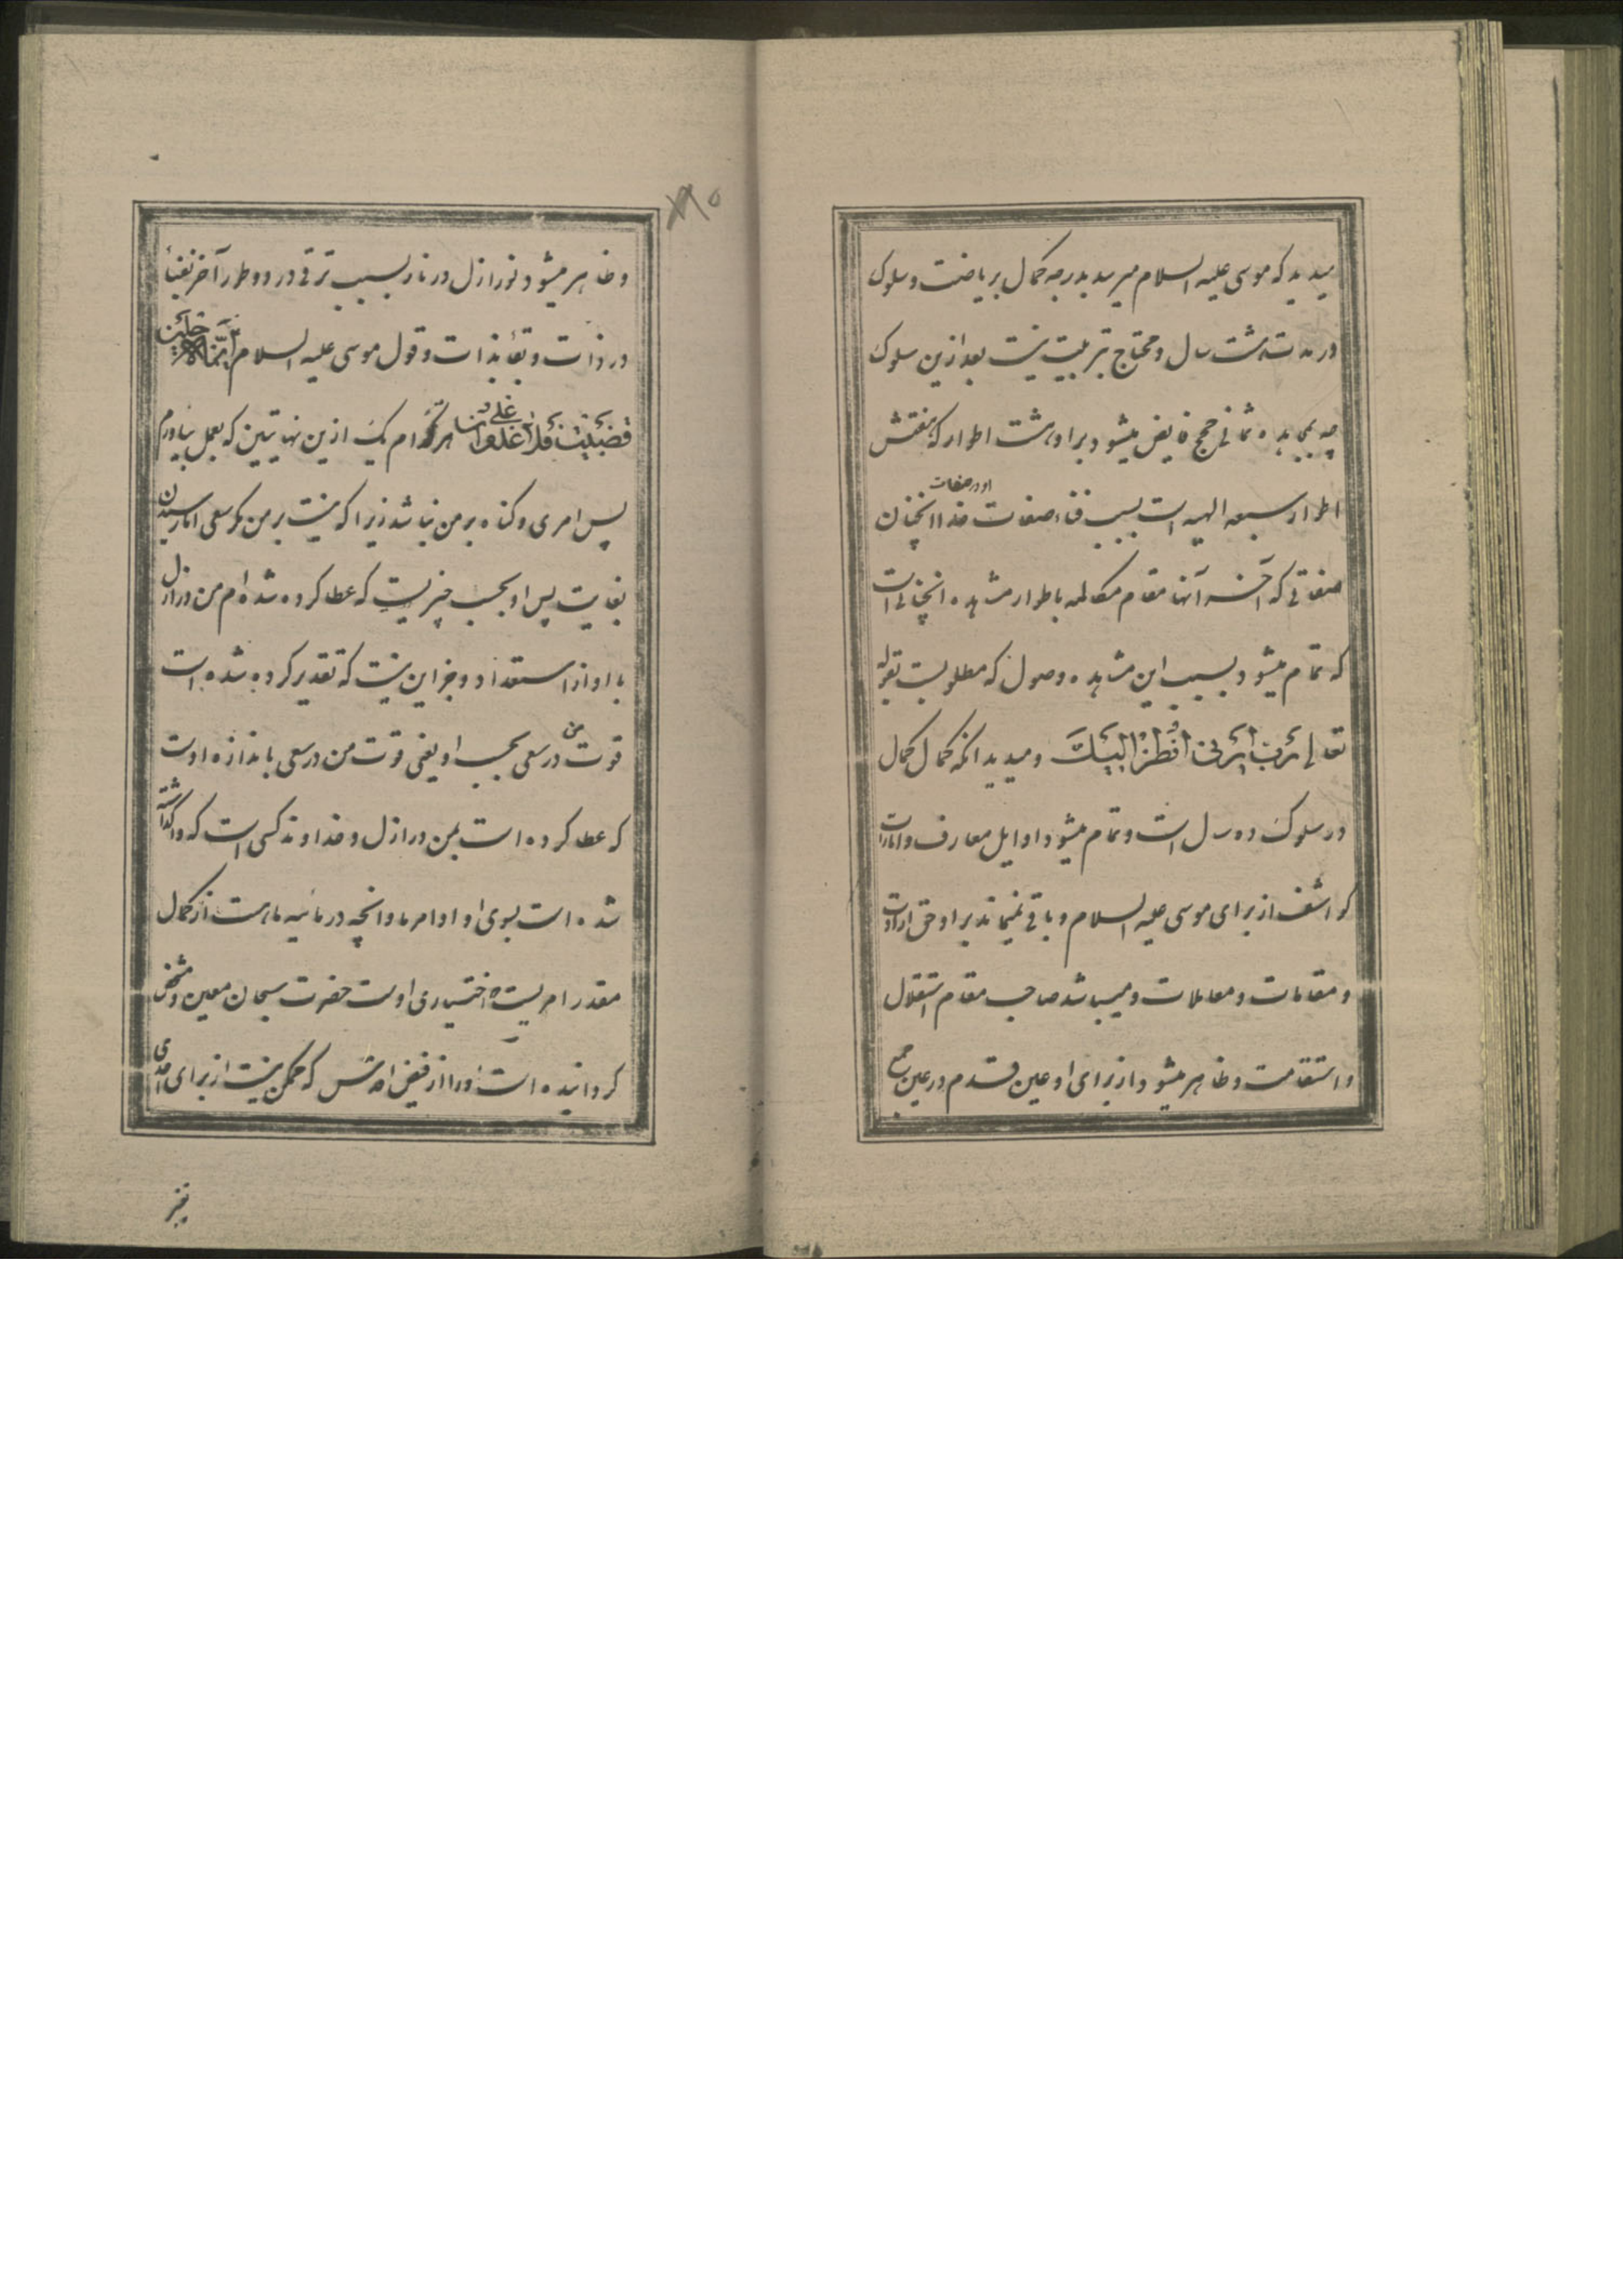 میدید که موسی علیه السلام میرسد بدرجه کمال بریاضت و سلوک
در مدت هشت سال و محتاج بتربیت نیست بعد ازین سلوک
چه بمجاهده ثمانی حجج فایض میشود براو هشت اطوار که هفتش
اطوار سبعه الهیه است بسبب فناء صفات او در صفات خدا آنچنان
صفاتی که آخر آنها مقام مکالمه با طوار مشاهده آنچنانی است
که تمام میشود بسبب این مشاهده وصول که مطلوبست بقوله
تعالی رب ارنی انظر الیک و میدید آنکه کمال کمال
در سلوک ده سال است و تمام میشود اوایل معارف و امارات
کواشف از برای موسی علیه السلام و باقی نمیماند براو حق ارادات
و مقامات و معاملات و میباشد صاحب مقام استقلال
و استقامت و ظاهر میشود از برای او عین قدم در عین جمع
و ظاهر میشود نور ازل در نار بسبب ترقی در دو طور آخر بفناء
در ذات و بقا بذات و قول موسی علیه السلام ایما الاجلین
قضیت فلا عدوان علی هر کدام یک ازین نهایتین که بعمل بیاورم
پس امری و گناه بر من نباشد زیرا که نیست بر من مگر سعی اما رسیدن
بغایت پس او بحسب چیزیست که عطا کرده شده‌ام من در ازل
با او از استعداد و جز این نیست که تقدیر کرده شده است
قوت من در سعی بحسب او یعنی قوت من در سعی باندازه اوست
که عطا کرده است بمن در ازل و خداوند کسی است که واگذاشته
شده است بسوی او اوامر ما و آنچه در مابین ما هست از کمال
مقدر امریست که اختیاری اوست حضرت سبحان معین و مشخص
گردانیده است او را از فیض اقدس که ممکن نیست از برای احدی
تغیر